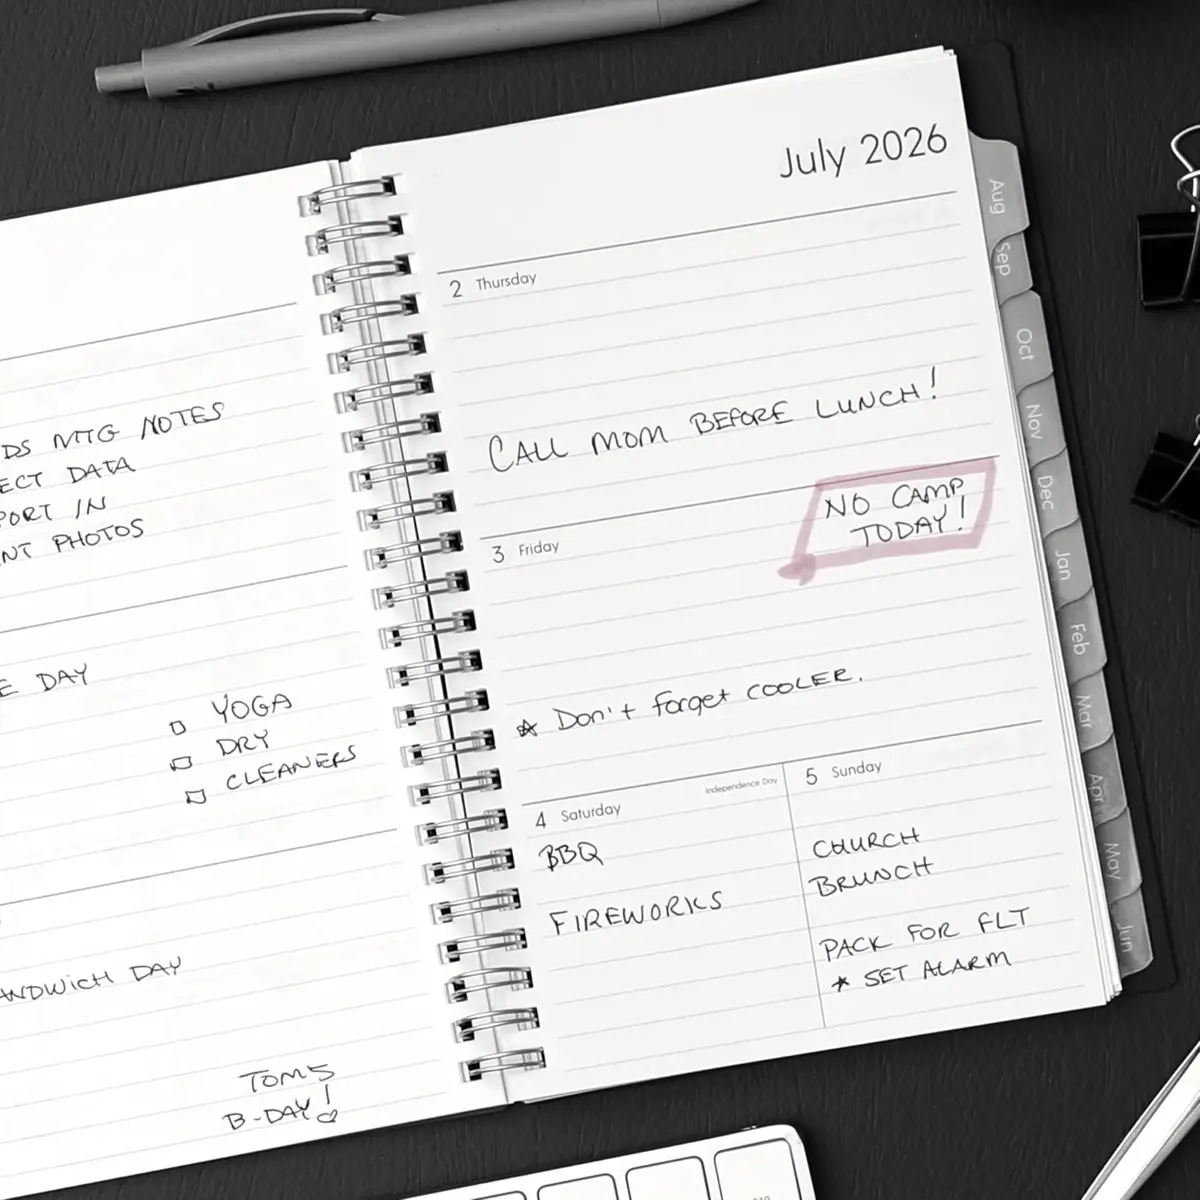 DS MTG NOTES
ECT DATA
PORT IN
NT PHOTOS
E DAY
YOGA
DRY
CLEANERS
ANDWICH DAY
TOM'S
B-DAY!
July 2026
2 Thursday
CALL MOM BEFORE LUNCH!
3 Friday
NO CAMP
TODAY!
☆ Don't forget COOLER.
4 Saturday
Independence Day
BBQ
FIREWORKS
5 Sunday
CHURCH
BRUNCH
PACK FOR FLT
★ SET ALARM
Aug
Sep
Oct
Nov
Dec
Jan
Feb
Mar
Apr
May
Jun